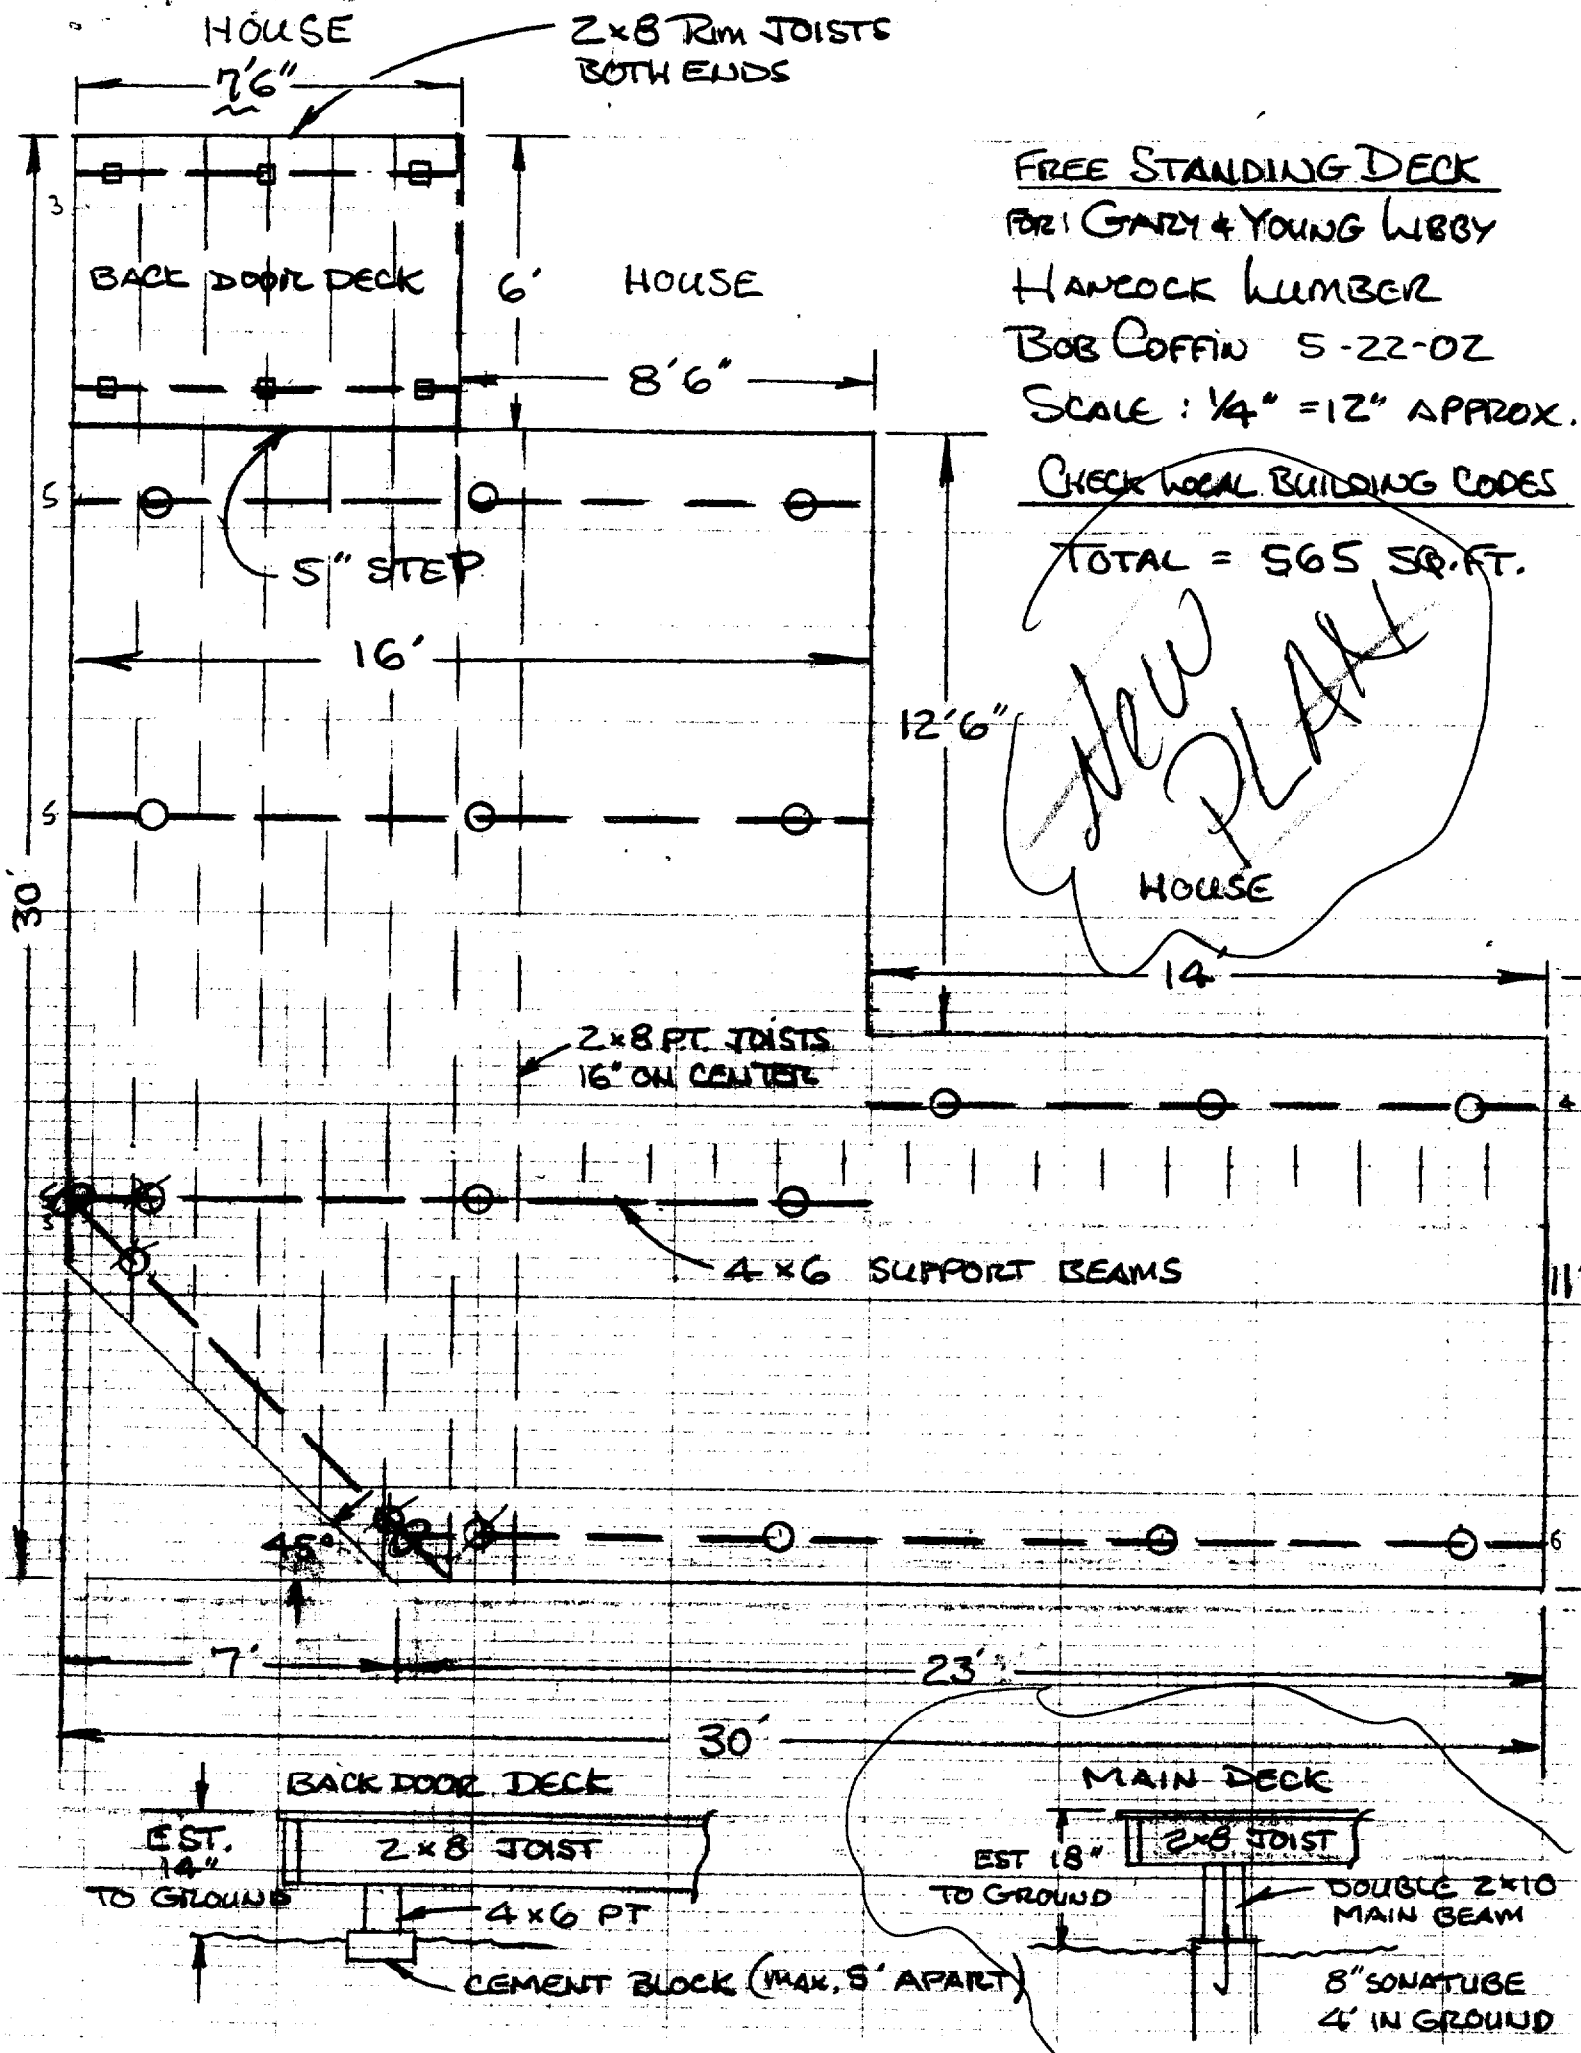 HOUSE
7'6"
2x8 Rim JOISTS
BOTH ENDS
FREE STANDING DECK
FOR: GARY & YOUNG LIBBY
HANCOCK LUMBER
BOB COFFIN 5-22-02
SCALE: 1/4" = 12" APPROX.
CHECK LOCAL BUILDING CODES
TOTAL = 565 SQ. FT.
NEW
PLAN
3
BACK DOOR DECK
6'
HOUSE
8'6"
5
5" STEP
16'
12'6"
5
30'
HOUSE
14'
2x8 PT. JOISTS
16" ON CENTER
4
4x6 SUPPORT BEAMS
11'
45°
6
7'
23'
30'
BACK DOOR DECK
EST.
14"
TO GROUND
2x8 JOIST
4x6 PT
CEMENT BLOCK (MAX. 5' APART)
MAIN DECK
EST 18"
TO GROUND
2x8 JOIST
DOUBLE 2x10
MAIN BEAM
8" SONATUBE
4' IN GROUND